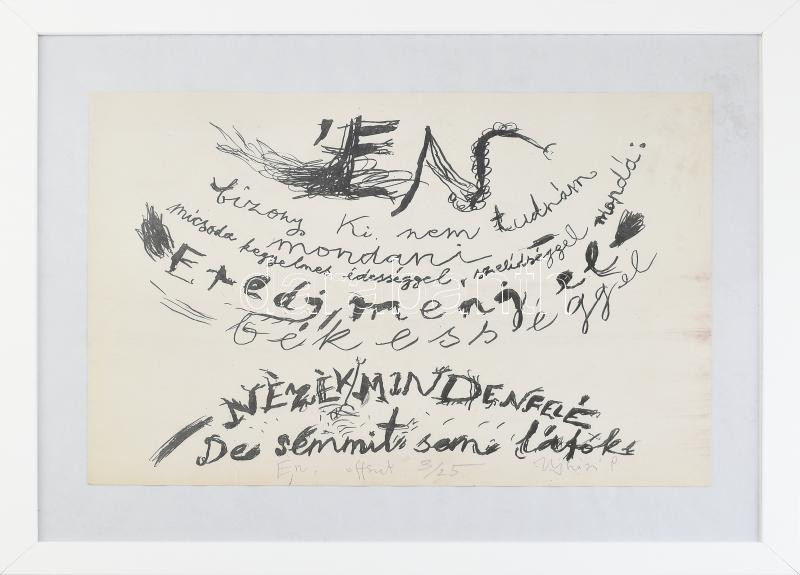 ÉN
bizony Ki nem tudnám
mondani
micsoda kegyelmes édességgel, szelidséggel mondá:
Eredj, menj el
békességgel
NÈZÈK MINDENFELÉ
De semmit sem látok
Én. offset 3/25
darabanth